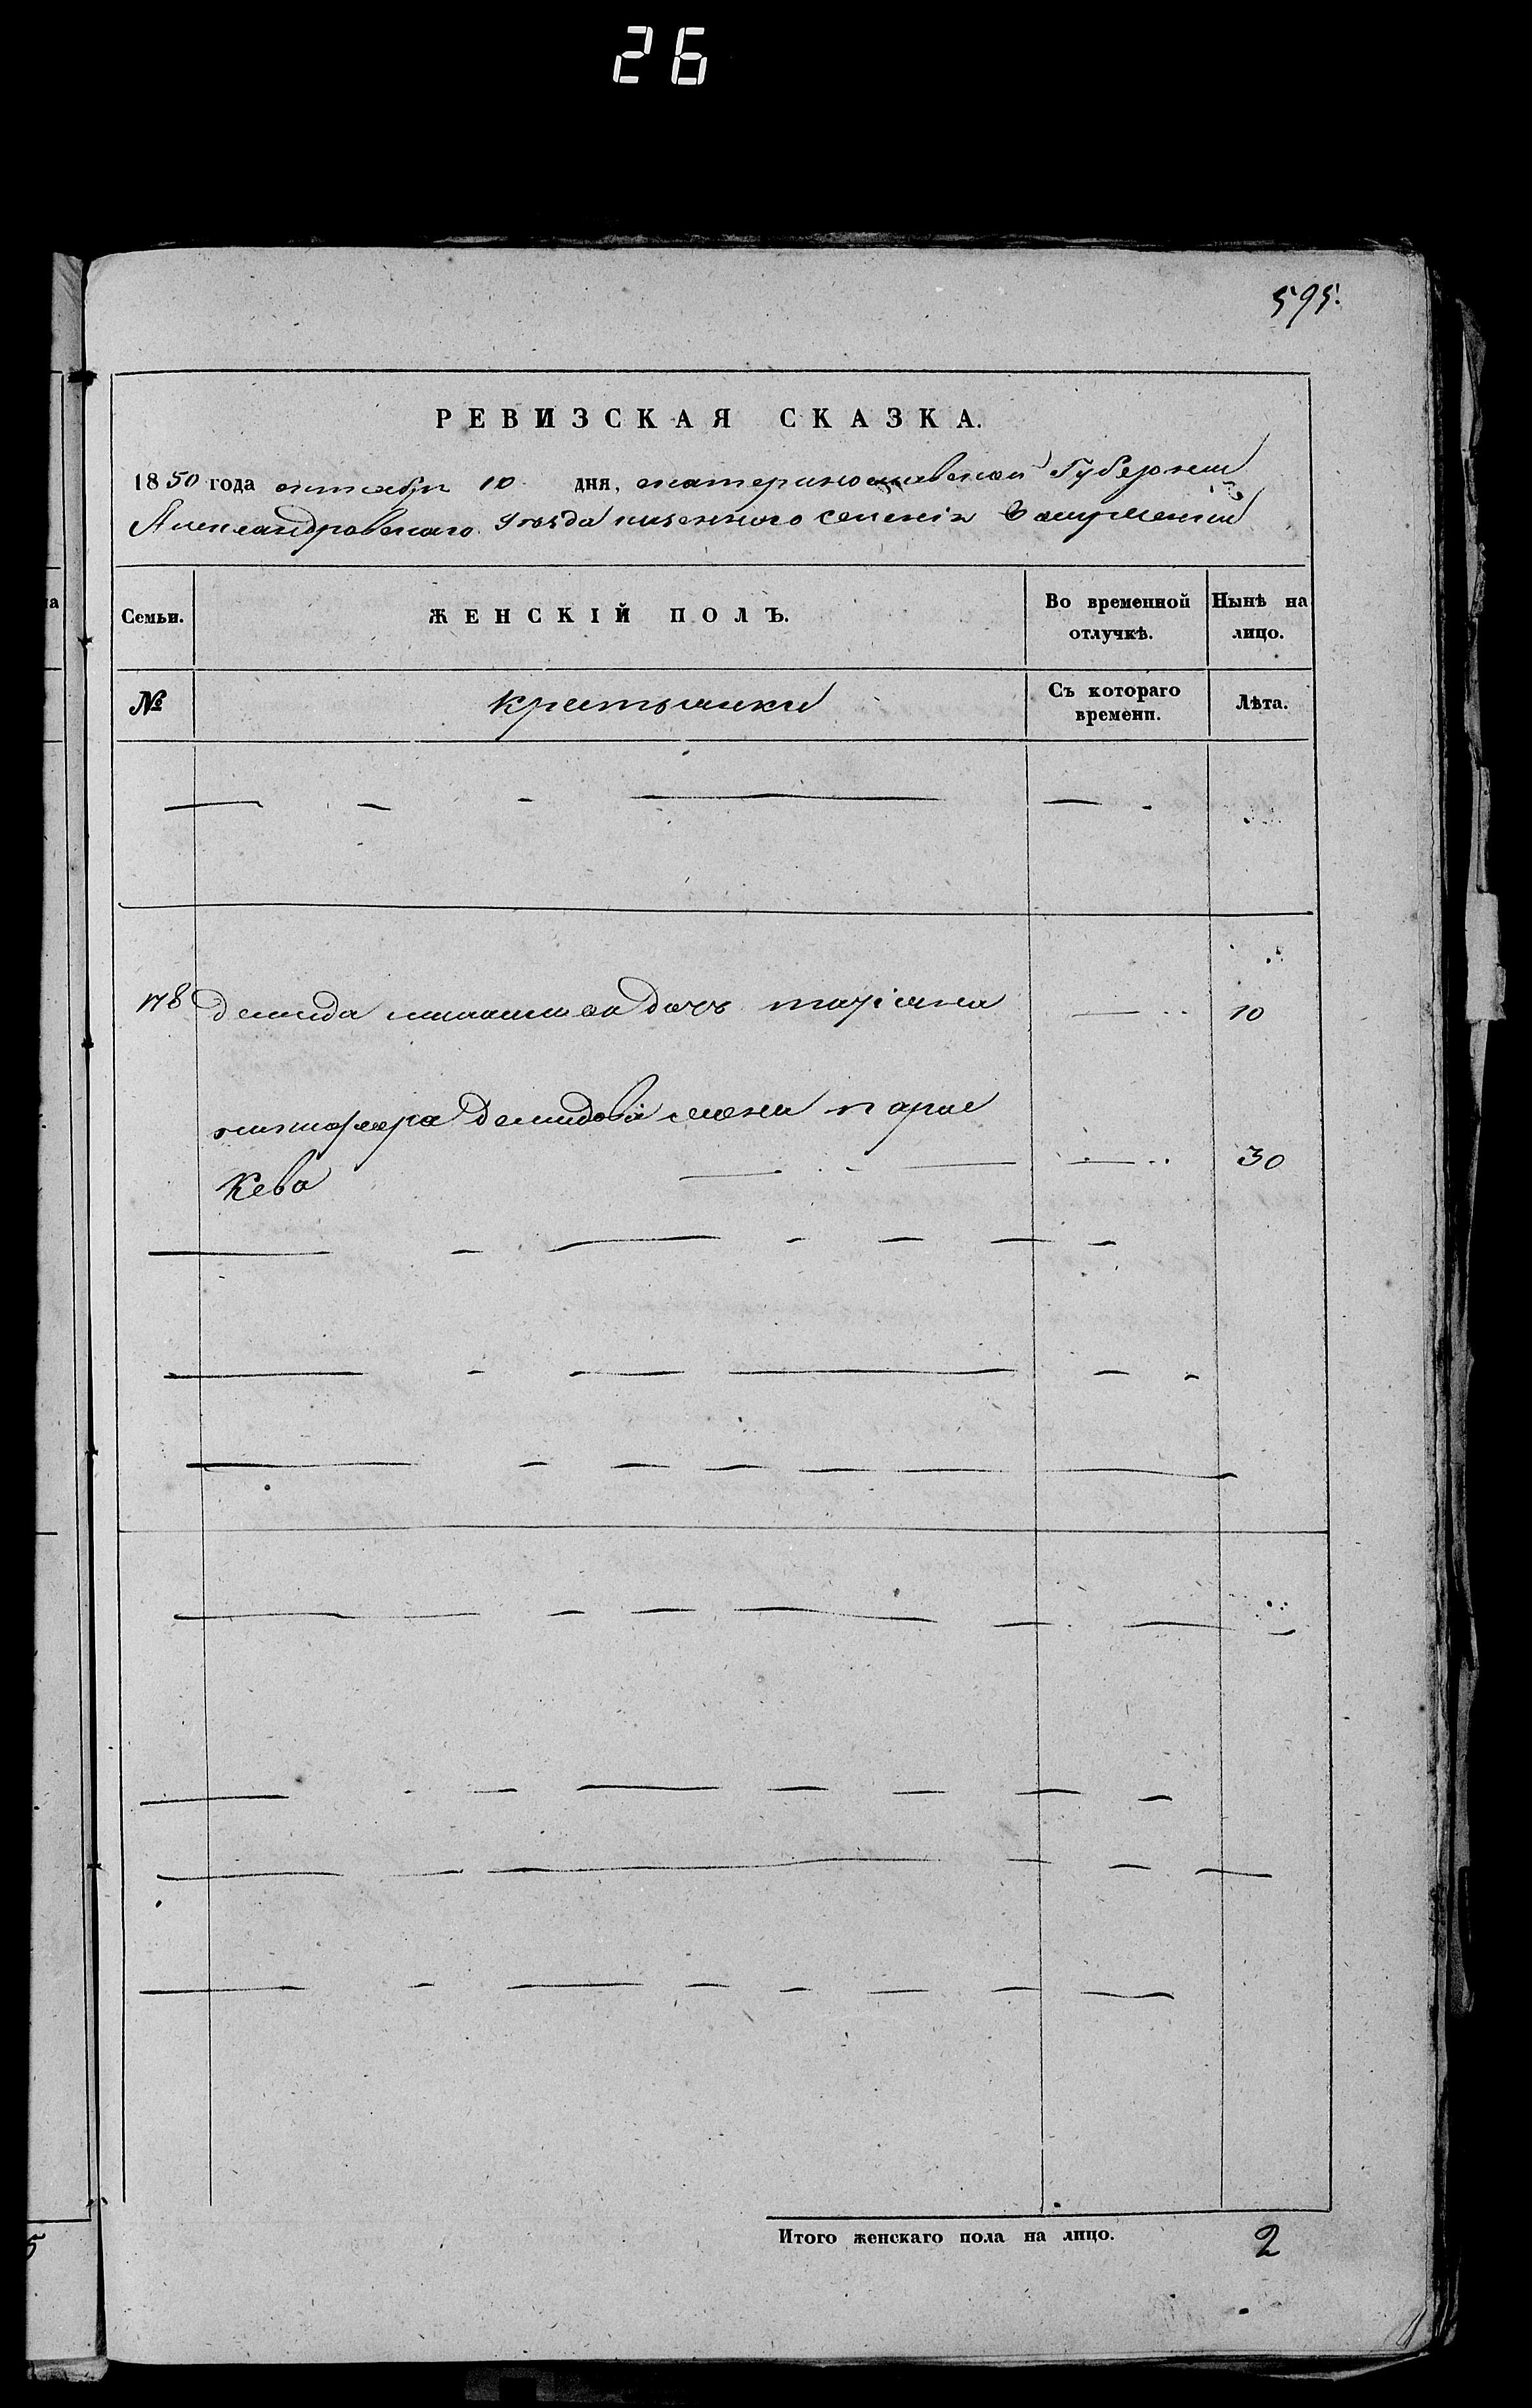 26
595.
РЕВИЗСКАЯ СКАЗКА.
1850 года октября 10 дня, екатеринославской Губернии
Александровскаго уезда казенного селения
Семьи. ЖЕНСКІЙ ПОЛЪ. Во временной отлучкѣ. Нынѣ на лицо.
№ крестьянки Съ котораго времени. Лѣта.
178 демида дочь марiина 10
никифора демидова жена парас
кева 30
Итого женскаго пола на лицо. 2